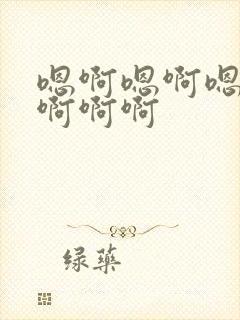 嗯啊嗯啊嗯
啊啊啊
绿药